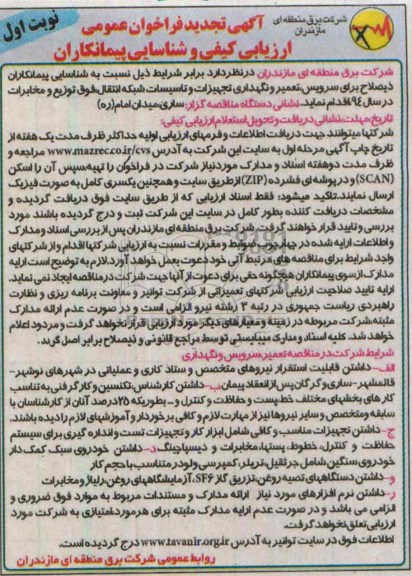 شرکت برق منطقه ای
مازندران
نوبت اول
آگهی تجدید فراخوان عمومی
ارزیابی کیفی و شناسایی پیمانکاران
شرکت برق منطقه ای مازندران در نظر دارد برابر شرایط ذیل نسبت به شناسایی پیمانکاران
ذیصلاح برای سرویس، تعمیر و نگهداری تجهیزات و تاسیسات شبکه انتقال، فوق توزیع و مخابرات
در سال ۹۴ اقدام نماید. نشانی دستگاه مناقصه گزار: ساری، میدان امام (ره)
تاریخ، مهلت، نشانی دریافت و تحویل استعلام ارزیابی کیفی:
شرکتها میتوانند جهت دریافت اطلاعات و فرمهای ارزیابی اولیه حداکثر ظرف مدت یک هفته از
تاریخ چاپ آگهی مرحله اول به سایت این شرکت به آدرس www.mazrec.co.ir/cvs مراجعه و
ظرف مدت دو هفته اسناد و مدارک مورد نیاز شرکت در فراخوان را تهیه، سپس آن را اسکن
(SCAN) و در پوشه ای فشرده (ZIP) از طریق سایت و همچنین یکسری کامل به صورت فیزیک
ارسال نمایند. تاکید میشود: فقط اسناد ارزیابی که از طریق سایت فوق دریافت گردیده و
مشخصات دریافت کننده بطور کامل در سایت این شرکت ثبت و درج گردیده باشند مورد
بررسی و تایید قرار خواهند گرفت. شرکت برق منطقه ای مازندران پس از بررسی اسناد و مدارک
و اطلاعات ارایه شده در چهارچوب ضوابط و مقررات نسبت به ارزیابی شرکتها اقدام و از شرکتهای
واجد شرایط برای مناقصه های مرتبط آتی خود دعوت بعمل خواهد آورد. لازم به توضیح است ارایه
مدارک از سوی پیمانکاران هیچگونه حقی برای دعوت از آنها جهت شرکت در مناقصه ایجاد نمی نماید.
ارایه تایید صلاحیت ارزیابی شرکتهای تعمیراتی از شرکت توانیر و معاونت برنامه ریزی و نظارت
راهبردی ریاست جمهوری در رتبه ۳ رشته نیرو الزامی است و در صورت عدم ارائه مدارک
مثبته، شرکت مربوطه در زمینه و معیارهای دیگر مورد ارزیابی قرار نخواهد گرفت و مردود اعلام
خواهد شد. کلیه اسناد و مدارک میبایستی توسط مرجع قانونی و ذیصلاح برابر اصل گردد.
شرایط شرکت در مناقصه تعمیر، سرویس و نگهداری:
الف- داشتن قابلیت استقرار نیروهای متخصص و ستاد کاری و عملیاتی در شهرهای نوشهر-
قائمشهر-ساری و گرگان پس از انعقاد پیمان ب- داشتن کارشناس، تکنسین و کارگر فنی به تناسب
کارهای بخشهای مختلف خط، پست و حفاظت و کنترل و... بطوریکه ۲۵ درصد آنان از کارشناسان با
سابقه و متخصص و سایر نیروها نیز از مهارت لازم و کافی برخوردار و آموزشهای لازم را دیده باشند.
ج- داشتن تجهیزات مناسب و کافی شامل ابزار کار و تجهیزات تست و اندازه گیری برای سیستم
حفاظت و کنترل، خطوط، پستها، مخابرات و دیسپاچینگ د- داشتن خودروی سبک کمک دار
خودروی سنگین شامل جرثقیل، تریلر، کمپرسی و لودر متناسب با حجم کار
و- داشتن دستگاههای تصیه روغن، تزریق گاز SF۶، آزمایشگاههای روغن، رلیاژ و مخابرات
ر- داشتن نرم افزارهای مورد نیاز ارائه مدارک و مستندات مربوط به موارد فوق ضروری و
الزامی می باشد و در صورت عدم ارایه مدارک مثبته برای هر مورد، امتیازی به شرکت مورد
ارزیابی تعلق نخواهد گرفت.
اطلاعات فوق در سایت توانیر به آدرس www.tavanir.org.ir درج گردیده است.
روابط عمومی شرکت برق منطقه ای مازندران